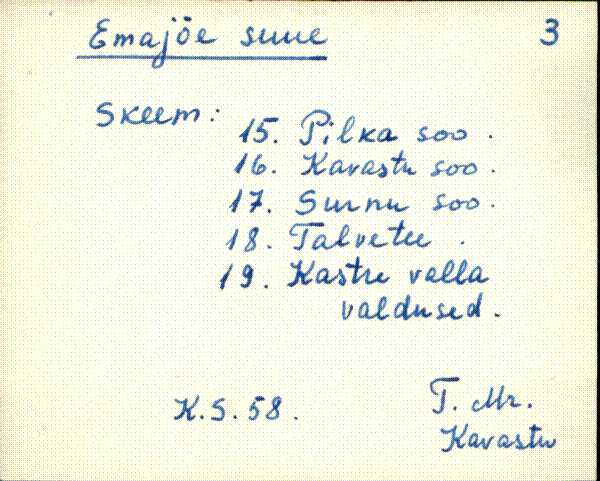 Emajõe suue 3
Skeem:
15. Pilka soo.
16. Kavastu soo.
17. Surnu soo.
18. Talvetee.
19. Kastre valla
valdused.
K.S. 58.
T. Mr.
Kavastu